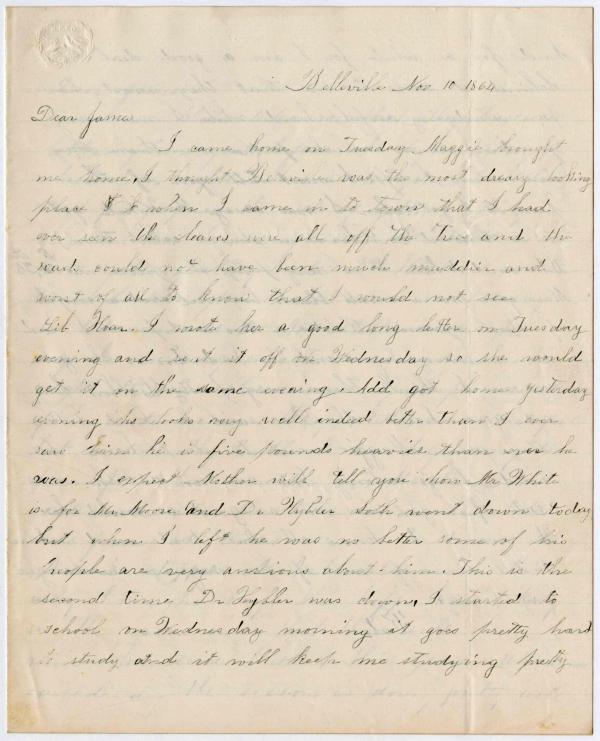 Belleville Nov 10 1864
Dear James
I came home on Tuesday Maggie brought
me home, I thought Belleville was the most dreary looking
place when I came in to town that I had
ever seen the leaves were all off the trees and the
roads could not have been much muddier and
worst of all to know that I would not see
Lib Hoar. I wrote her a good long letter on Tuesday
evening and sent it off on Wednesday so she would
get it on the same evening. Add got home yesterday
evening he looks very well indeed better than I ever
saw him he is five pounds heavier than ever he
was. I expect Mother will tell you how Mr White
is for Mr Moore and Dr both went down today
but when I left he was no better some of his
people are very anxious about him. This is the
second time Dr was down, I started to
school on Wednesday morning it goes pretty hard
to study and it will keep me studying pretty